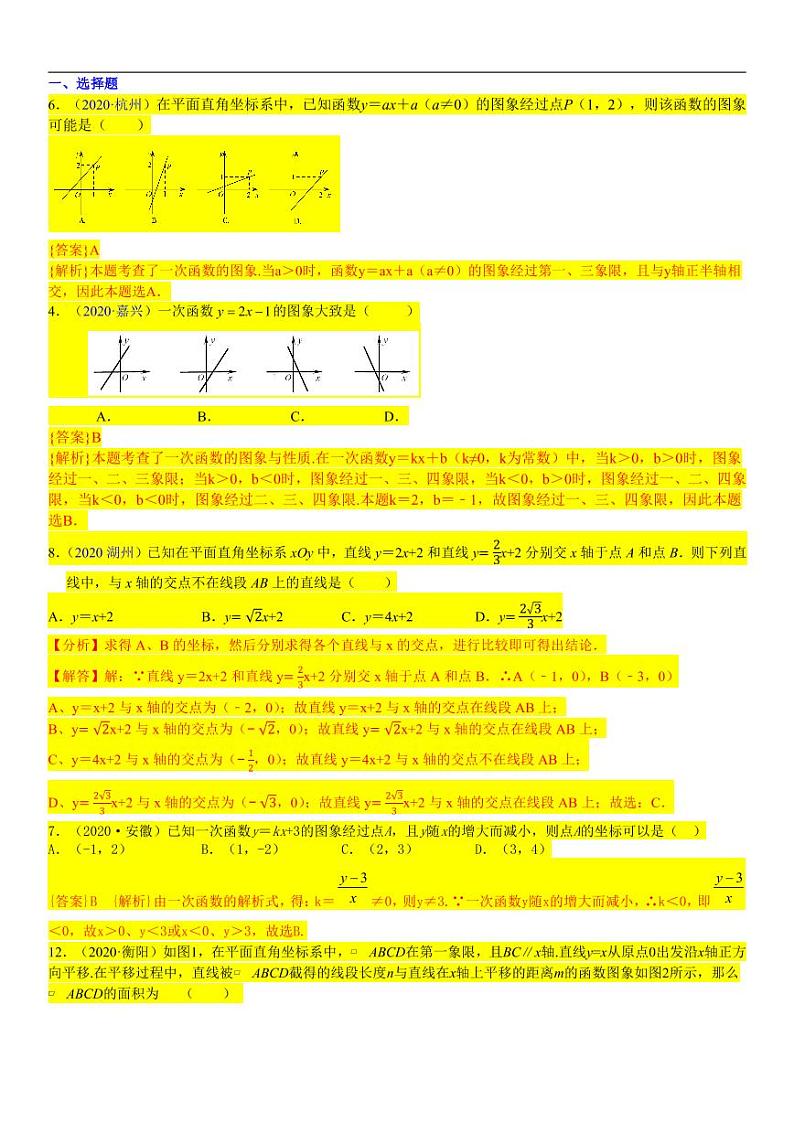 一、选择题
6．（2020·杭州）在平面直角坐标系中，已知函数y＝ax＋a（a≠0）的图象经过点P（1，2），则该函数的图象
可能是（　　）
y 2 P O 1 x
y 2 P O 1 x
y 1 P O 2 x
y 1 P O 2 x
A. B C. D.
{答案}A
{解析}本题考查了一次函数的图象.当a＞0时，函数y＝ax＋a（a≠0）的图象经过第一、三象限，且与y轴正半轴相
交，因此本题选A．
4．（2020·嘉兴）一次函数 y = 2x −1的图象大致是（　　）
y O x y O x y O x y O x
A． B． C． D．
{答案}B
{解析}本题考查了一次函数的图象与性质.在一次函数y＝kx＋b（k≠0，k为常数）中，当k＞0，b＞0时，图象
经过一、二、三象限；当k＞0，b＜0时，图象经过一、三、四象限，当k＜0，b＞0时，图象经过一、二、四象
限，当k＜0，b＜0时，图象经过二、三、四象限.本题k＝2，b＝﹣1，故图象经过一、三、四象限，因此本题
选B．
8.（2020 湖州）已知在平面直角坐标系 xOy 中，直线 y＝2x+2 和直线 y= 2/3x+2 分别交 x 轴于点 A 和点 B．则下列直
线中，与 x 轴的交点不在线段 AB 上的直线是（　　）
A．y＝x+2 B．y= √2x+2 C．y＝4x+2 D．y= 2√3/3x+2
【分析】求得 A、B 的坐标，然后分别求得各个直线与 x 的交点，进行比较即可得出结论．
【解答】解：∵直线 y＝2x+2 和直线 y= 2/3x+2 分别交 x 轴于点 A 和点 B．∴A（﹣1，0），B（﹣3，0）
A、y＝x+2 与 x 轴的交点为（﹣2，0）；故直线 y＝x+2 与 x 轴的交点在线段 AB 上；
B、y= √2x+2 与 x 轴的交点为（− √2，0）；故直线 y= √2x+2 与 x 轴的交点在线段 AB 上；
C、y＝4x+2 与 x 轴的交点为（− 1/2，0）；故直线 y＝4x+2 与 x 轴的交点不在线段 AB 上；
D、y= 2√3/3x+2 与 x 轴的交点为（− √3，0）；故直线 y= 2√3/3x+2 与 x 轴的交点在线段 AB 上；故选：C．
7．（2020·安徽）已知一次函数y＝kx+3的图象经过点A，且y随x的增大而减小，则点A的坐标可以是（　）
A．（-1，2） B．（1，-2） C．（2，3） D．（3，4）
{答案}B {解析}由一次函数的解析式，得：k＝ (y−3)/x ≠0，则y≠3.∵一次函数y随x的增大而减小，∴k＜0，即 (y−3)/x
＜0，故x＞0、y＜3或x＜0、y＞3，故选B.
12．（2020·衡阳）如图1，在平面直角坐标系中，▱ ABCD在第一象限，且BC∥x轴.直线y=x从原点O出发沿x轴正方
向平移.在平移过程中，直线被▱ ABCD截得的线段长度n与直线在x轴上平移的距离m的函数图象如图2所示，那么
▱ ABCD的面积为 （　　）